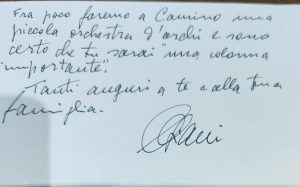 Fra poco faremo a Camino una
piccola orchestra d'archi e sono
certo che tu sarai "una colonna
importante".
Tanti auguri a te e alla tua
famiglia.